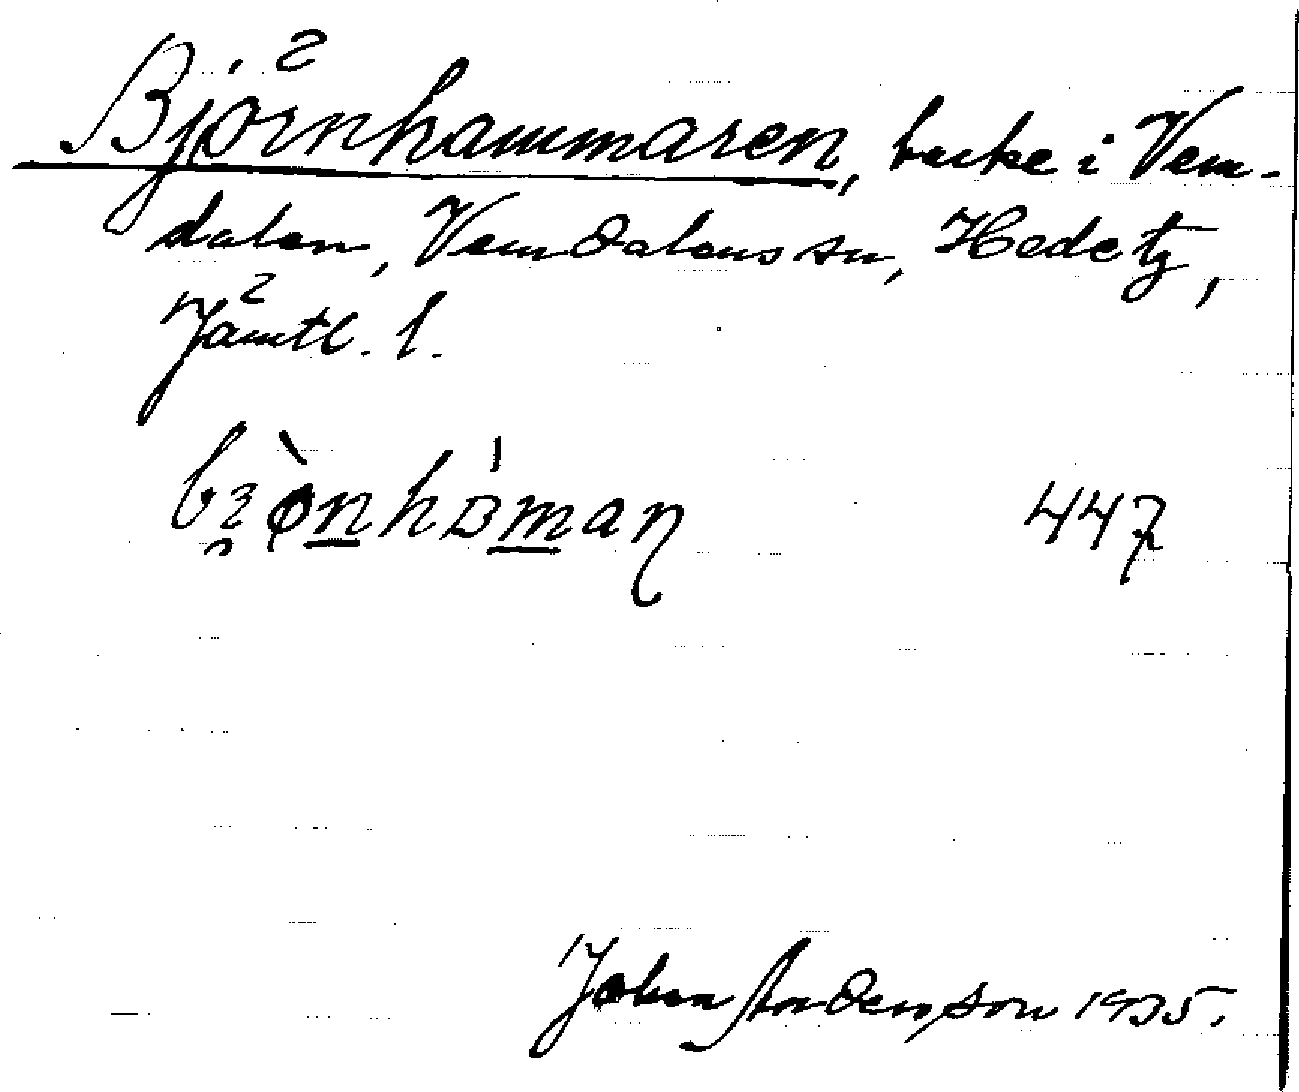 Björnhammaren, backe i Vem-
dalen, Vemdalens sn, Hede tg,
Jämtl. l.
447
Johan Anderson 1935.